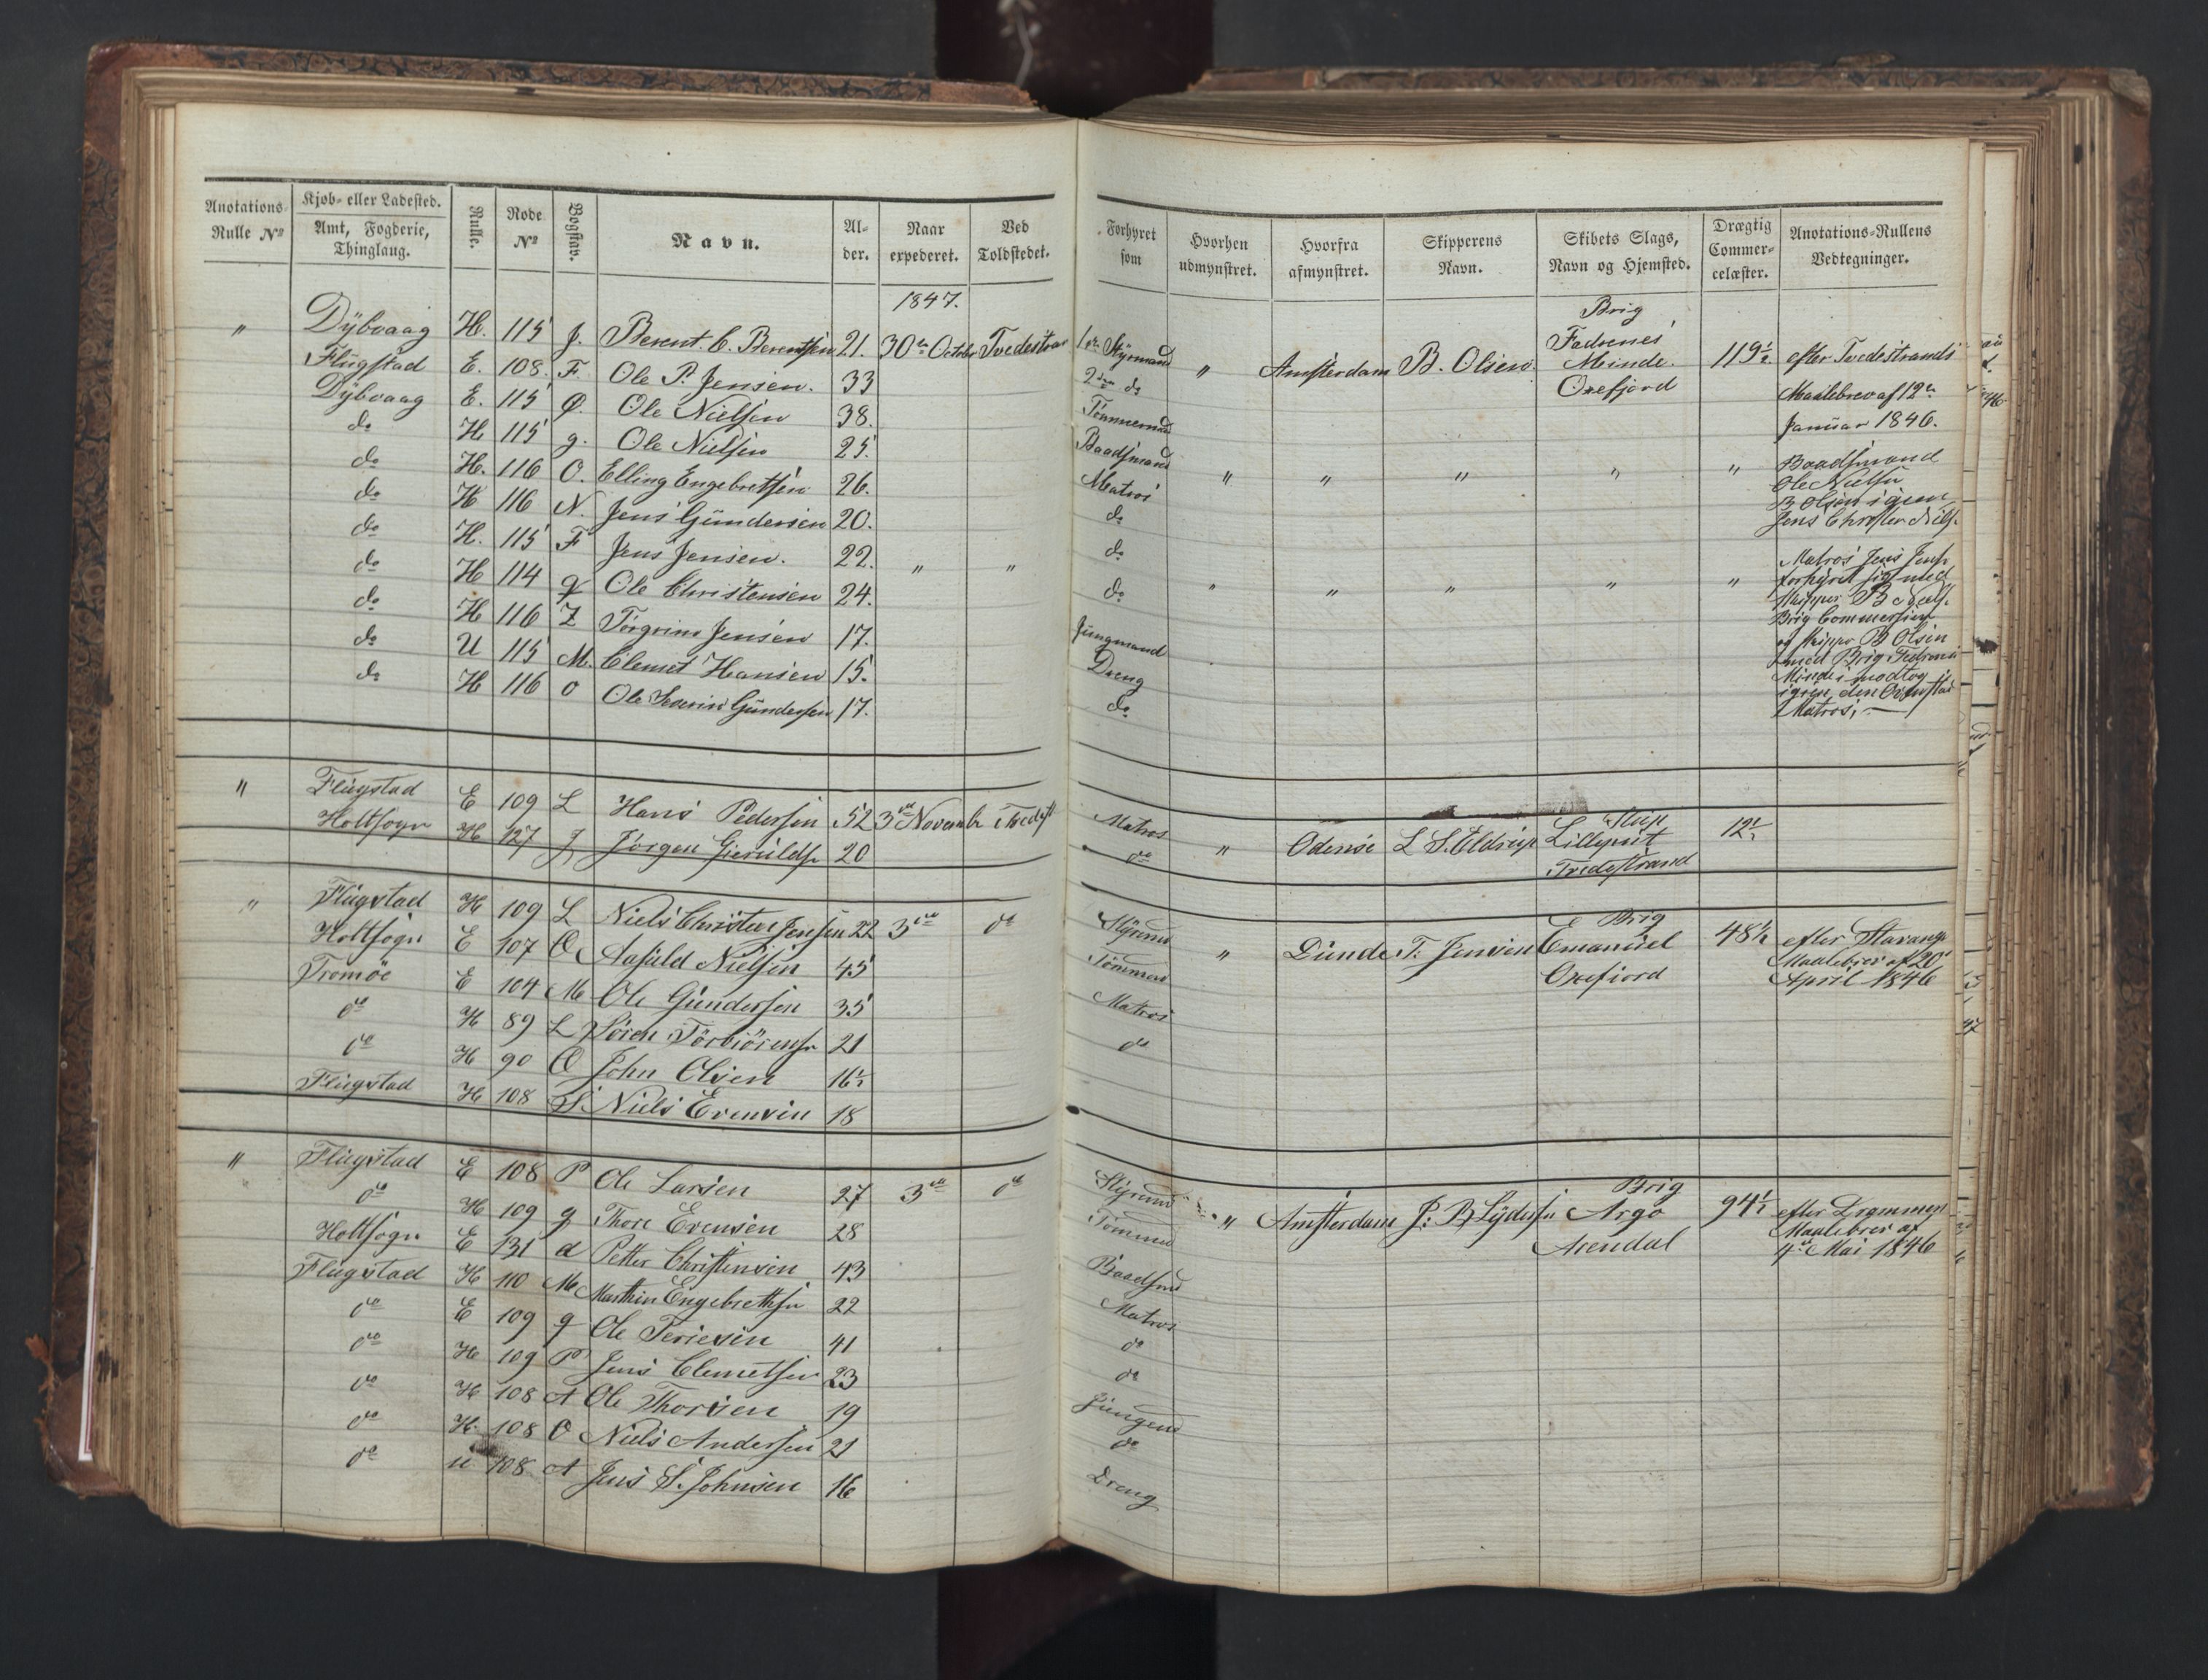 Anotations-Rulle № | Kjøb- eller Ladested. Amt, Fogderie, Thinglaug. | Rulle. | Rode № | Bogstav. | Navn. | Al-der. | Naar expederet. | Ved Toldstedet.
1847.
" Dÿbvaag H. 115 J. Berent. C. Berentsen 21. 30te October Tvedestra
Flügstad E. 108. F. Ole P. Jensen. 33
Dÿbvaag E. 115 Ø. Ole Nielsen 38.
do H 115 g. Ole Nielsen 25.
do H. 116 O. Elling Engebretsen 26.
do H 116 N. Jens Gündersen 20.
do H. 115 F Jens Jensen. 22. " "
do H 114 q Ole Christensen 24.
do H 116 Z Törgrim Jensen 17.
do U 115 M. Clemet Hansen 15.
do H 116 o Ole Severin Gündersen 17.
" Flügstad E 109 L Hans Pedersen 52 3die Novembr Tvedest
Holtsogn H 127 J Jörgen Gieruldsn 20
" Flügstad H 109 L Niels Christian Jensen 22 3die do
Holtsogn E 107 O Aasüld Nielsen 45
Tromöe E 104 M Ole Gündersen 35
do H 89 L Sören Törbiörnsn 21
do H 90 O John Olsen 16½
Flügstad H 108 S Niels Evensen 18
" Flügstad E 108 P Ole Larsen 27 3die do
do H 109 g Thore Evensen 28
Holtsogn E 131 d Petter Christensen 43
Flügstad H 110 M Marthin Engebrethsn 22
do E 109 g Ole Teriesen 41
do H 109 P Jens Clemetsen 23
do H 108 A Ole Thorsen 19
do H. 108 O Niels Andersen 21
do u 108 A Jens S. Johnsen 16
Forhyret som | Hvorhen udmynstret. | Hvorfra afmynstret. | Skipperens Navn. | Skibets Slags, Navn og Hjemsted. | Drægtig Commer-celæster. | Anotations-Rullens Vedtegninger.
Brig
1ste Stÿrmand " Amsterdam B. Olsen. Fædrenes Minde. Oxefjord 119½ efter Tvedestrands
2den do Maalebrev af 12te
Tömmermand Januar 1846.
Baadsmand " " " " " Baadsmand
Matros Ole Nielsen
do B Olsen igien
Jens Christen Niels.
do Matros Jens Jens.
do " " " " " forhÿret sig med
Skipper B
Brig
Jüngmand og Skipper B Olsen
Dreng med Brig Fædrenes
do Minde modtog
igien den
Matros.
Matros " Odense L S. Eldrup Slup Lilleput Tvedestrand 12½
do
Stÿrmd " Dünde T. Jensen Brig Emanüel Oxefiord 48½ efter Stavang
Tömmerm Maalebrev af 20
Matros April 1846
do
Stÿrmd " Amsterdam J. B Lÿdersn Brig Argo Arendal 94½ efter Drammen
Tömmrm Maalebrev af
Baadsmd 4de Mai 1846
Matros
do
do
Jüngmd
do
Dreng